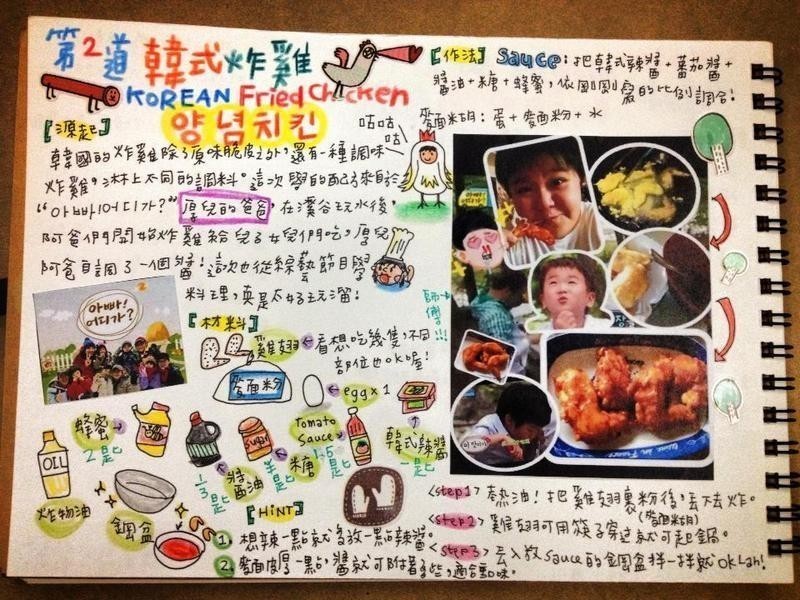 第2道韓式炸雞
KOREAN Fried Chicken
양념치킨
[源起]
韓國的炸雞除了原味脆皮之外,還有一種調味
炸雞,淋上不同的調料。這次學的配方來自於
"아빠!어디가?" 厚兒的爸爸,在溪谷玩水後,
阿爸們開始炸雞給兒子女兒們吃,厚兒
阿爸自調了一個醬!這次也從綜藝節目學
料理,真是太好玩溜!
咕咕
咕
師傅!!!
아빠!
어디가?
[材料]
雞翅 ← 看想吃幾隻,不同
部位也OK喔!
麥面粉
egg x 1
蜂蜜
2匙
OIL
炸物油
鋼盆
1/3匙
醬油
SUGAR
半匙
糖
Tomato
Sauce
1.5
匙
韓式辣醬
一匙
[HiNT]
1. 想辣一點就多放一點辣醬。
2. 麥面皮厚一點,醬就可附著多些,適合重口味。
[作法] Sauce:把韓式辣醬+蕃茄醬+
醬油+糖+蜂蜜,依剛剛寫的比例調合!
麥面糊:蛋+麥面粉+水
<step1> 熱油!把雞翅裹粉後,丟下去炸。
(麥面糊)
<step2> 雞翅可用筷子穿過就可起鍋。
<step3> 丟入放sauce的鋼盆拌一拌就OK Lah!